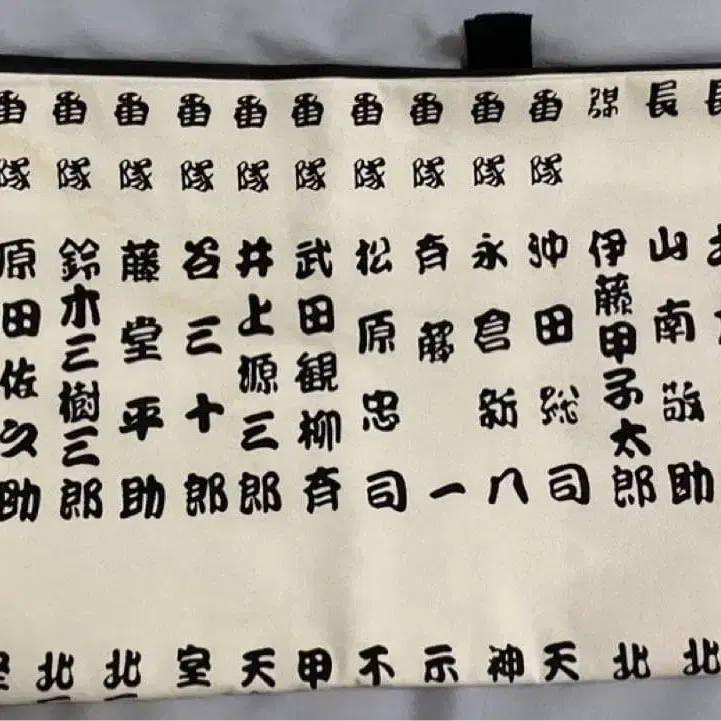 長
長 山南敬助 北
謀 伊藤甲子太郎 北
番隊 沖田総司 天
番隊 永倉新八 神
番隊 斉藤一 示
番隊 松原忠司 不
番隊 武田観柳斉 甲
番隊 井上源三郎 天
番隊 谷三十郎 室
番隊 藤堂平助 北
番隊 鈴木三樹三郎 北
番隊 原田佐之助